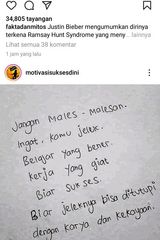 34,805 tayangan
faktadanmitos Justin Bieber mengumumkan dirinya
terkena Ramsay Hunt Syndrome yang meny... lainnya
Lihat semua 38 komentar
1 jam yang lalu
motivasisuksesdini
Jangan Males-malesan.
Ingat, kamu jelek.
Belajar yang bener.
kerja yang giat
Biar sukses.
Biar jeleknya bisa ditutupi
dengan karya dan kekayaan.